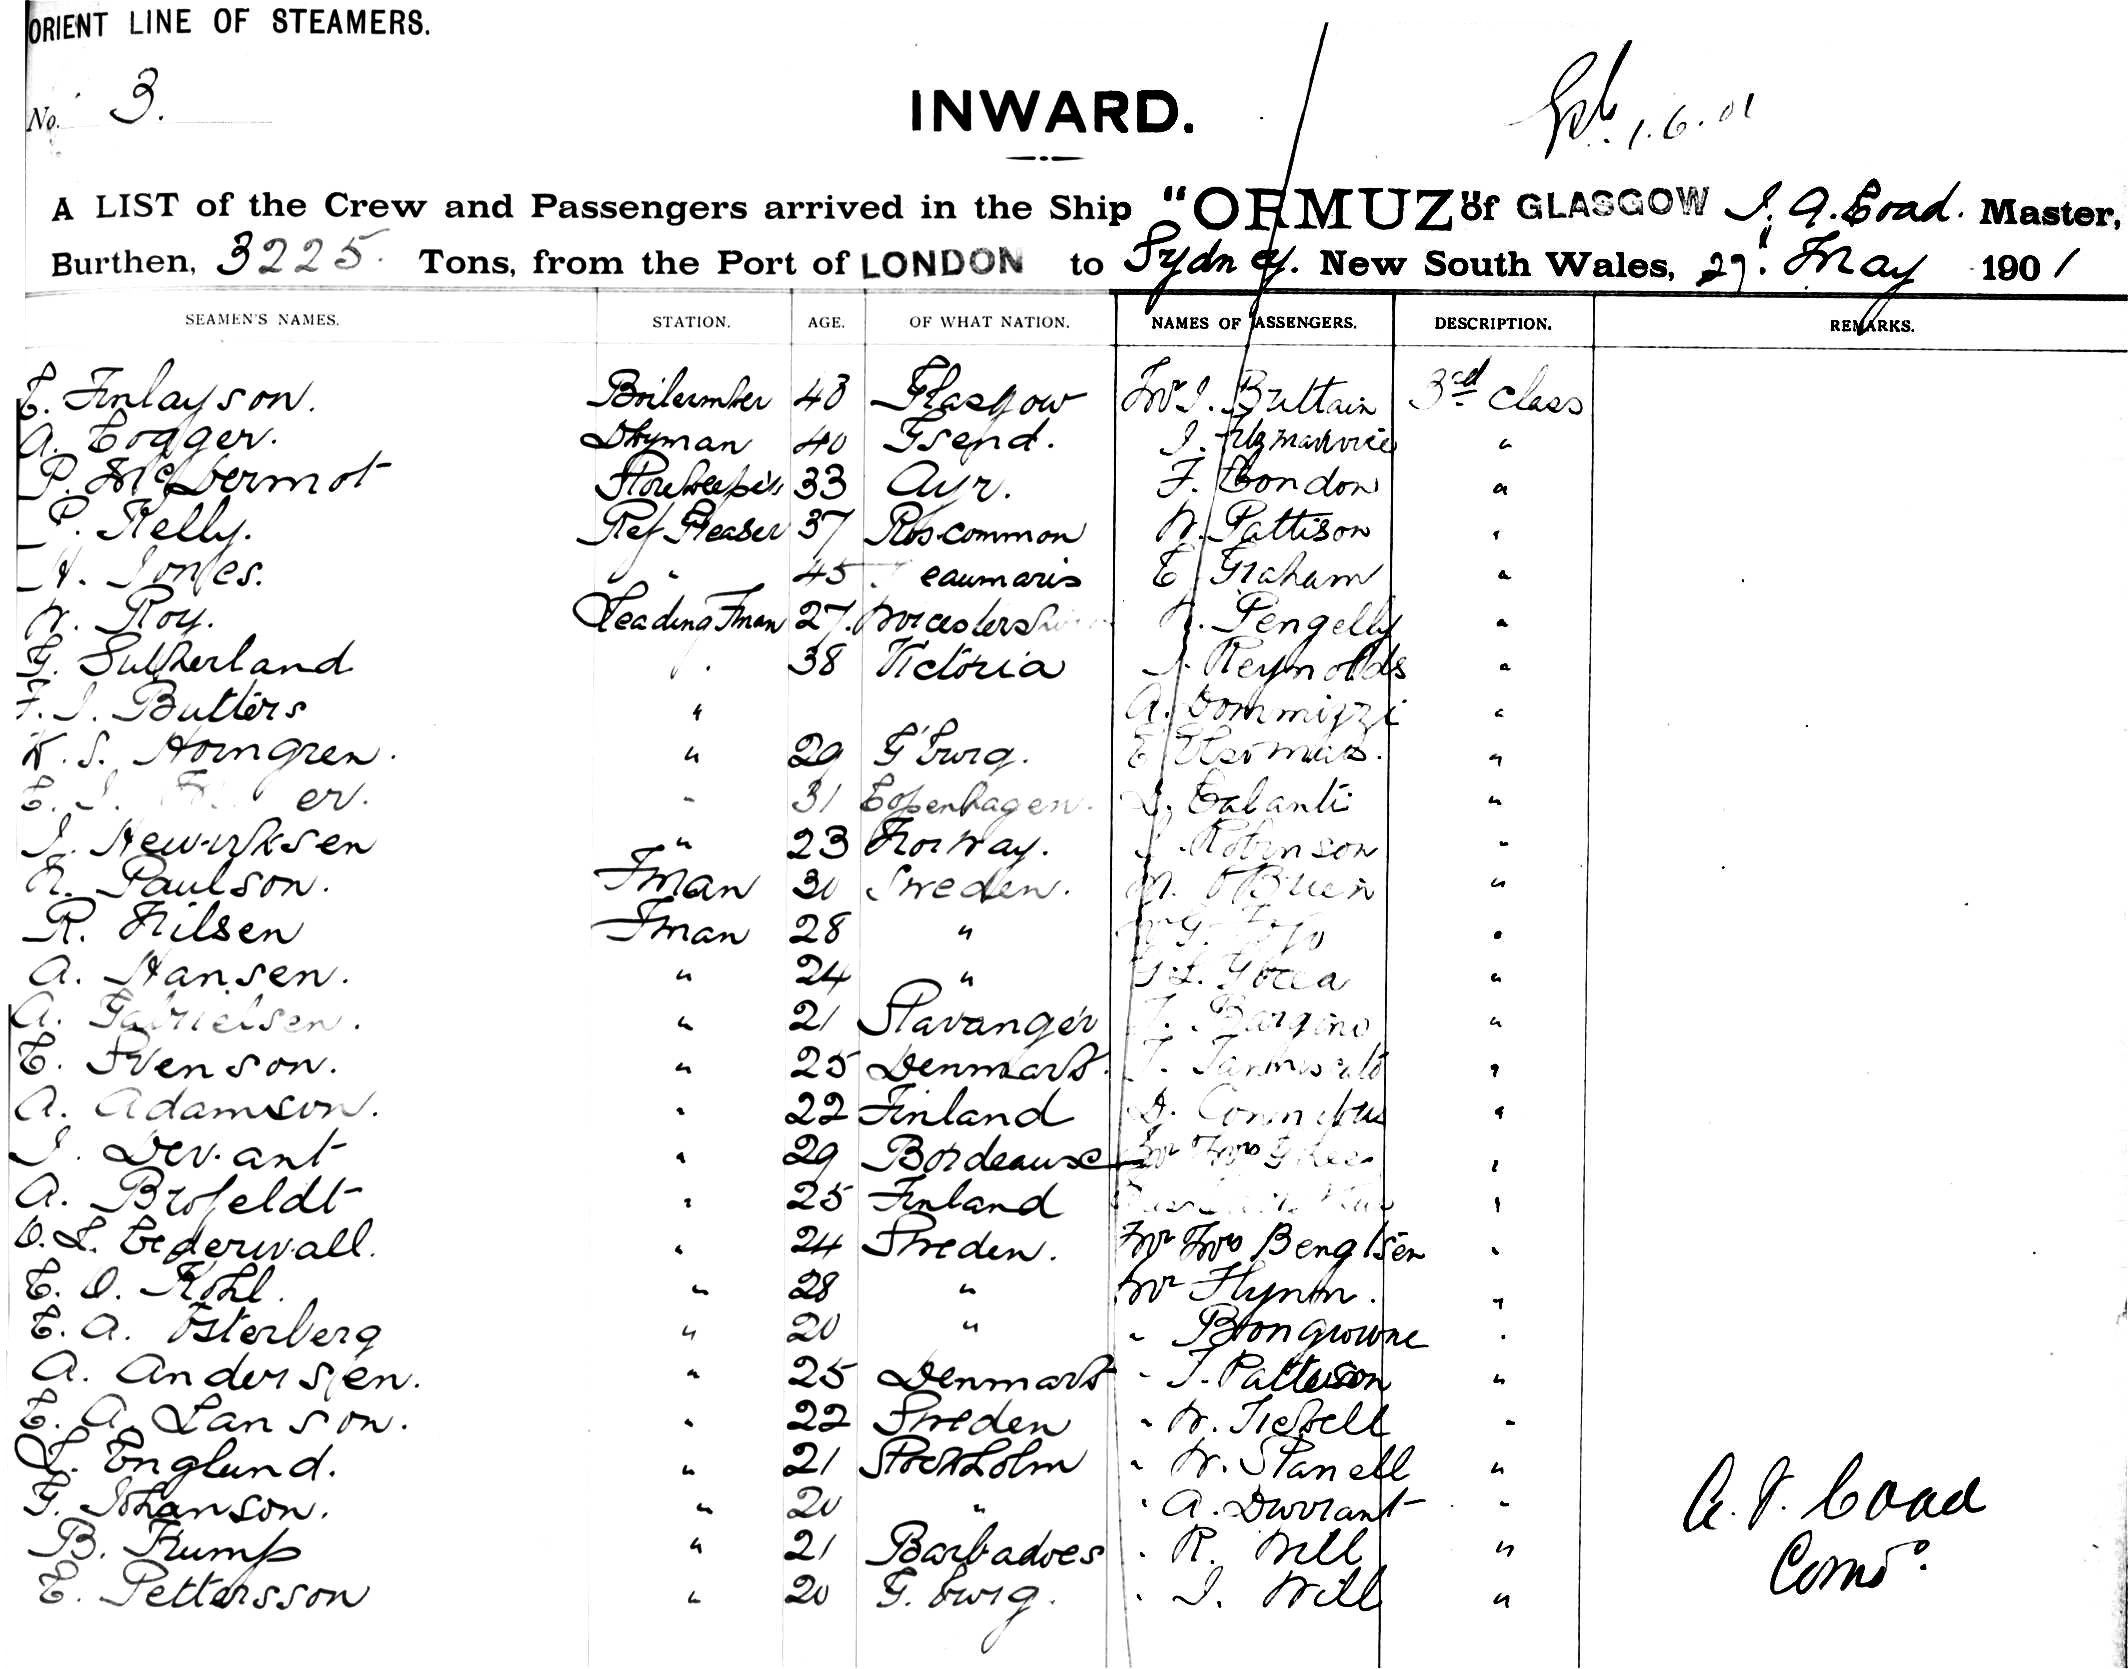 ORIENT LINE OF STEAMERS.
No. 3.
INWARD.
1.6.01
A LIST of the Crew and Passengers arrived in the Ship "ORMUZ" of GLASGOW J. A. Coad. Master,
Burthen, 3225. Tons, from the Port of LONDON to Sydney. New South Wales, 29. May 1901
SEAMEN'S NAMES. STATION. AGE. OF WHAT NATION. NAMES OF PASSENGERS. DESCRIPTION. REMARKS.
C. Finlayson. 43 Glasgow Mr J. Brittain 3rd class
A. Cogger. 40 Gsend. J. Fitzmaurice "
P. McDermot Storekeeper 33 Ayr. F. Condon "
P. Kelly. Ref Greaser 37 Roscommon W. Pattison "
H. Jones. " 45 eaumaris E. Graham "
W. Roy. Leading Fman 27. Pengelly "
G. Sutherland " 38 Victoria Reynolds "
F. J. Butters " A. Dommizzi "
K. S. Horngren. " 29 G'burg. E. Thomas. "
C. J. er. " 31 Copenhagen. Calanti "
J. " 23 Norway. Robinson "
N. Paulson. Fman 30 Sweden. M. O'Brien "
R. Nilsen Fman 28 " "
A. Hansen. " 24 " "
A. Gabrielsen. " 21 Stavanger Bargino "
C. Svenson. " 25 Denmark. "
A. Adamson. " 22 Finland D. "
J. Devant " 29 Bordeause Mr Mrs "
A. Brofeldt " 25 Finland "
O. L. Cederwall. " 24 Sweden. Mr Mrs Bengtsen "
C. O. Kohl. " 28 " Mr Flynn. "
C. A. Osterberg " 20 " " "
A. Andersen. " 25 Denmark " J. Patterson "
C. A. Lanson. " 22 Sweden " W. "
L. Englund. " 21 Stockholm " W. Stanell "
G. Johanson. " 20 " " A. Durrant "
B. Trump " 21 Barbadoes " R. Will "
C. Pettersson " 20 G. burg. " J. Will "
A. J. Coad
Comdr.